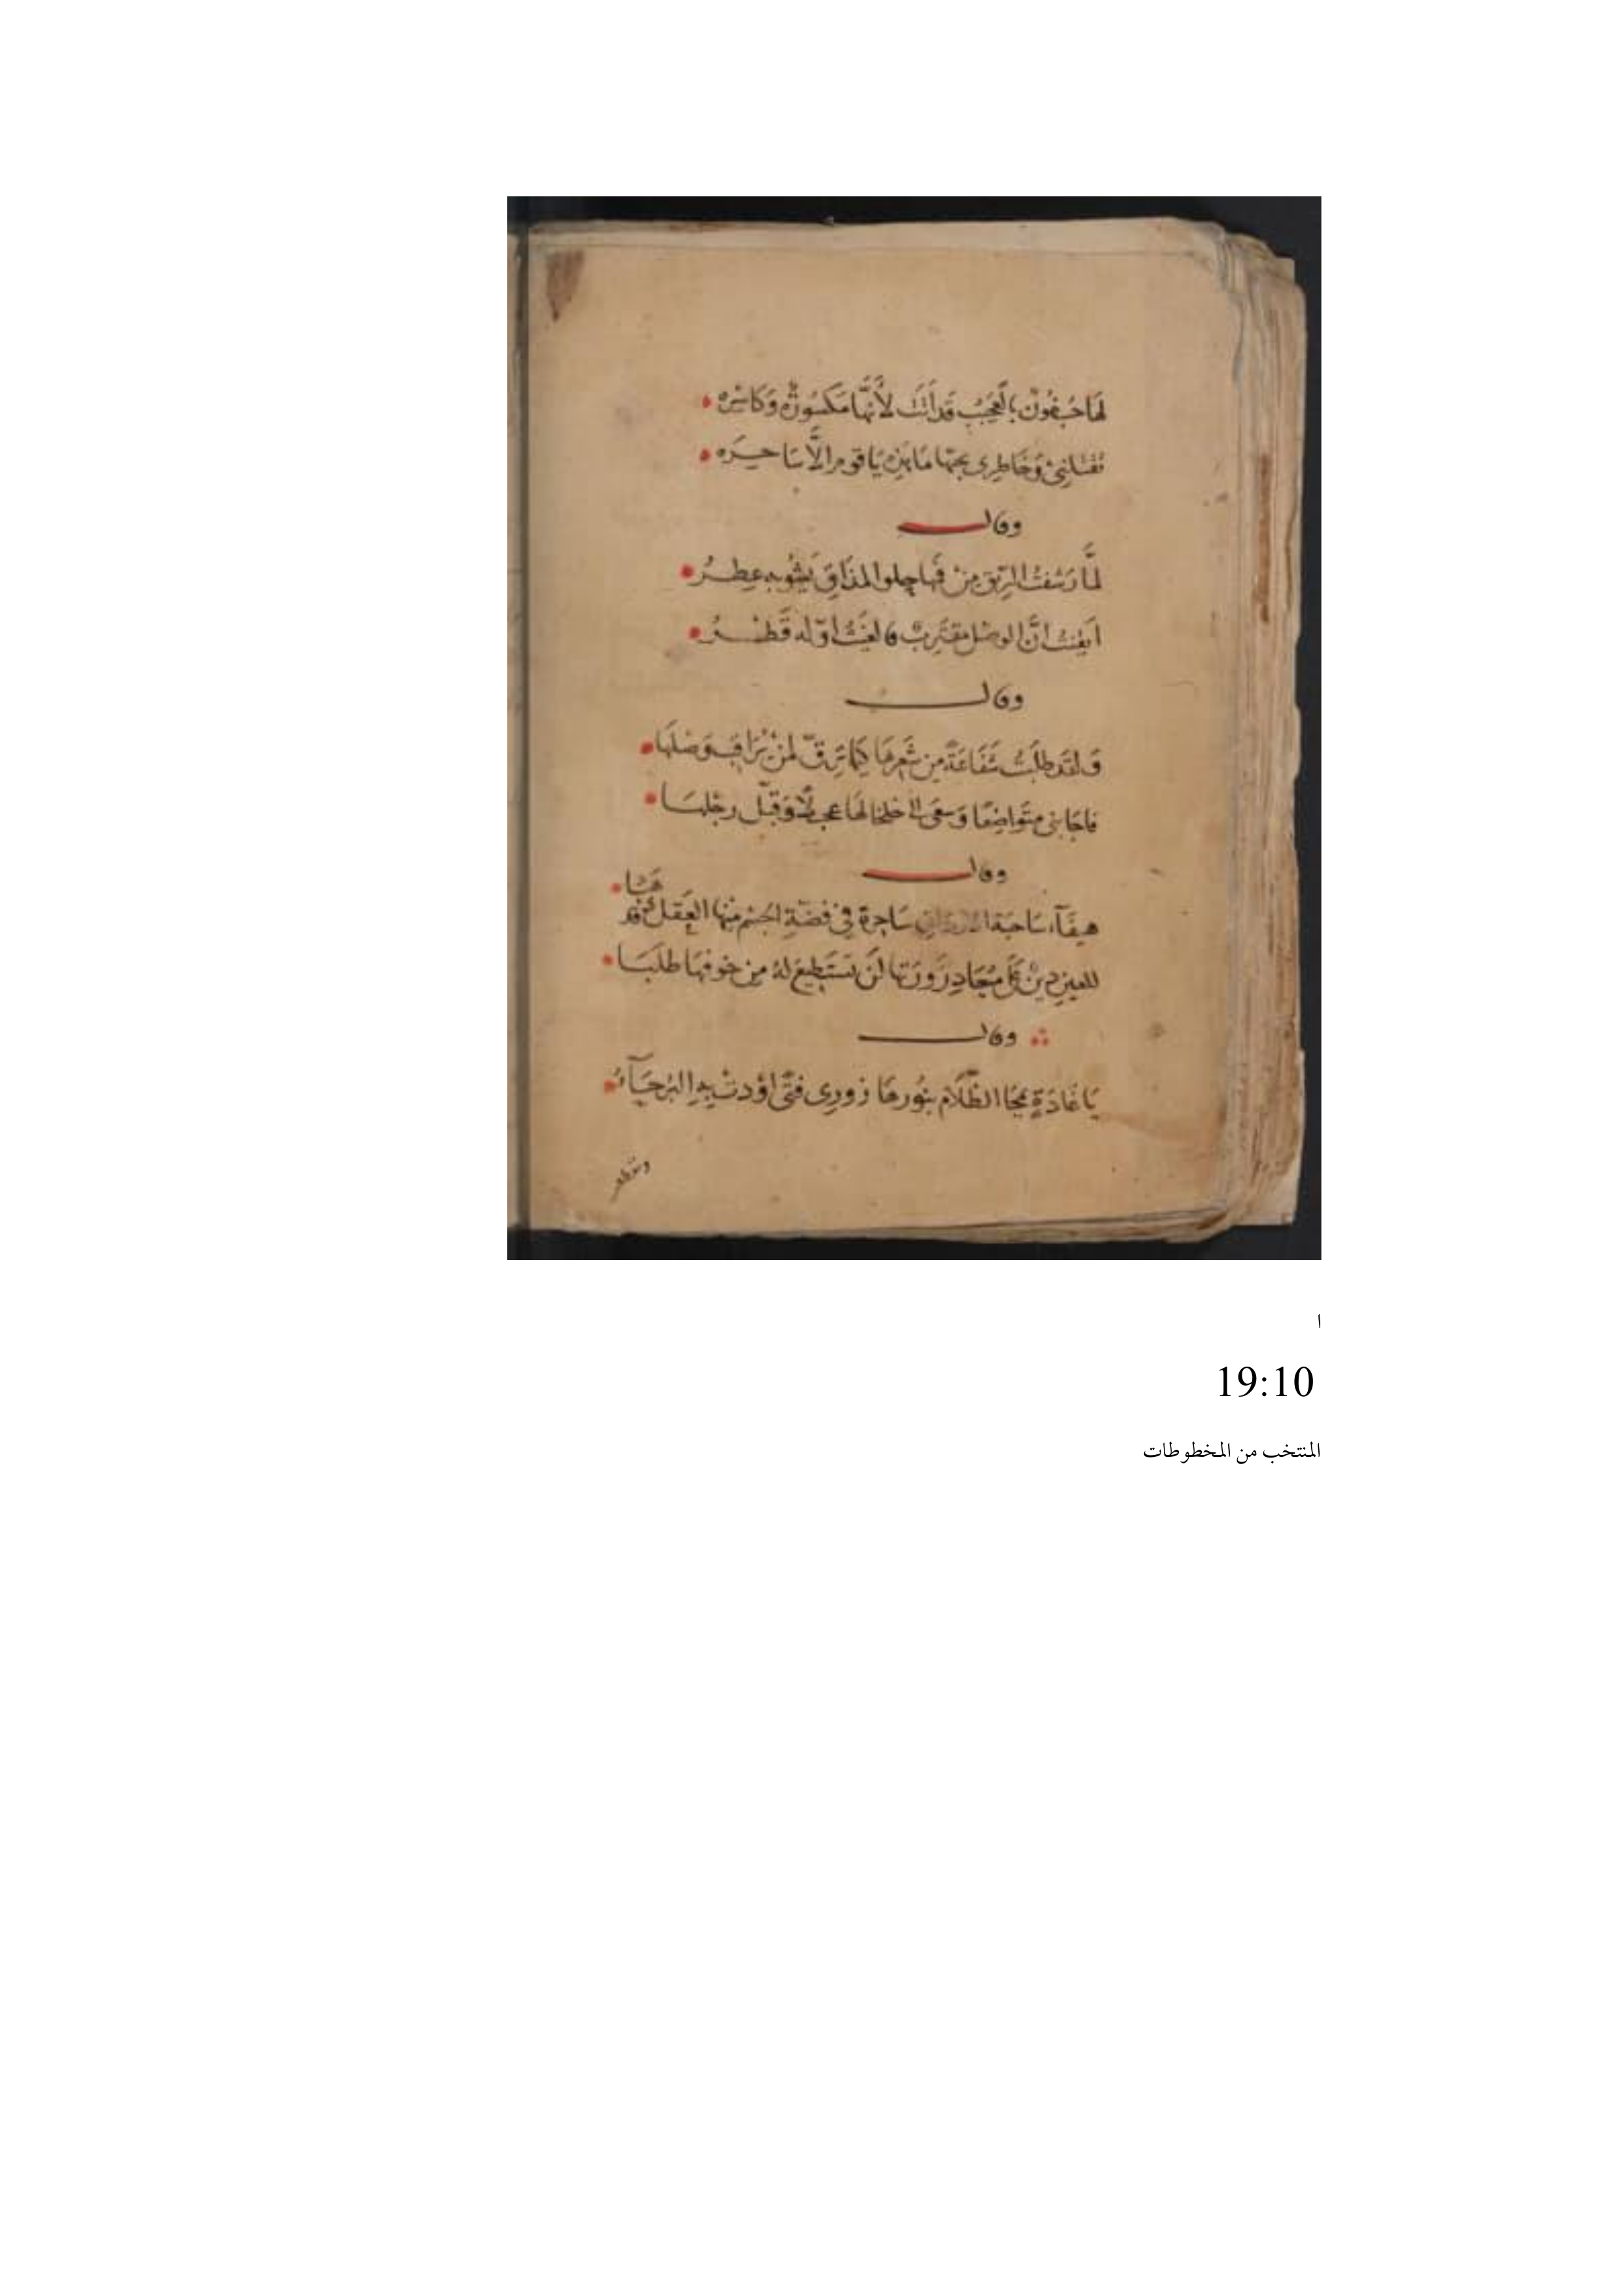 لَهَا جُفُونٌ بِالْعُجْبِ قَد أَتَتْ لأَنَّهَا مَكسُورَةٌ وَكَاسِرَه
تَقْتُلنِي وَخَاطِرِي بحبّها مَا هَذِه يَا قوم إلَّا سَاحِرَه
وقال
لَمَّا رَشفتُ الرِّيقَ مِنْ فَمِهَا حلو المذَاقِ يَشُوبه عِطرُ
ايقنتُ انَّ الوصْل مقتَرِبٌ فالغَيْثُ اوّله قَطْرُ
وقال
وَلقَد طلَبْتُ شَفَاعَةً مِن شَعرِهَا كَيمَا تَرِقّ لمنْ يُرَاقِبُ وَصْلَهَا
فاجَابني متَوَاضِعًا وَسعَى الى خلخالهَا عجِلًا وَقَبّل رِجْلهَا
وقال
هيفَآء سَاحبَة سَاحِرة فِي فضّةِ الجسْم مِنْهَا العَقل قد
للعين دينٌ لَن تستَطِيعَ لهُ مِن خوفهَا طلَبَا
وقال
يَا غَادَةٍ محَا الظّلَام بنُورهَا زورِى فتًى اوْدتْ بِهِ البُرَحَآءُ
ا
19:10
المنتخب من المخطوطات